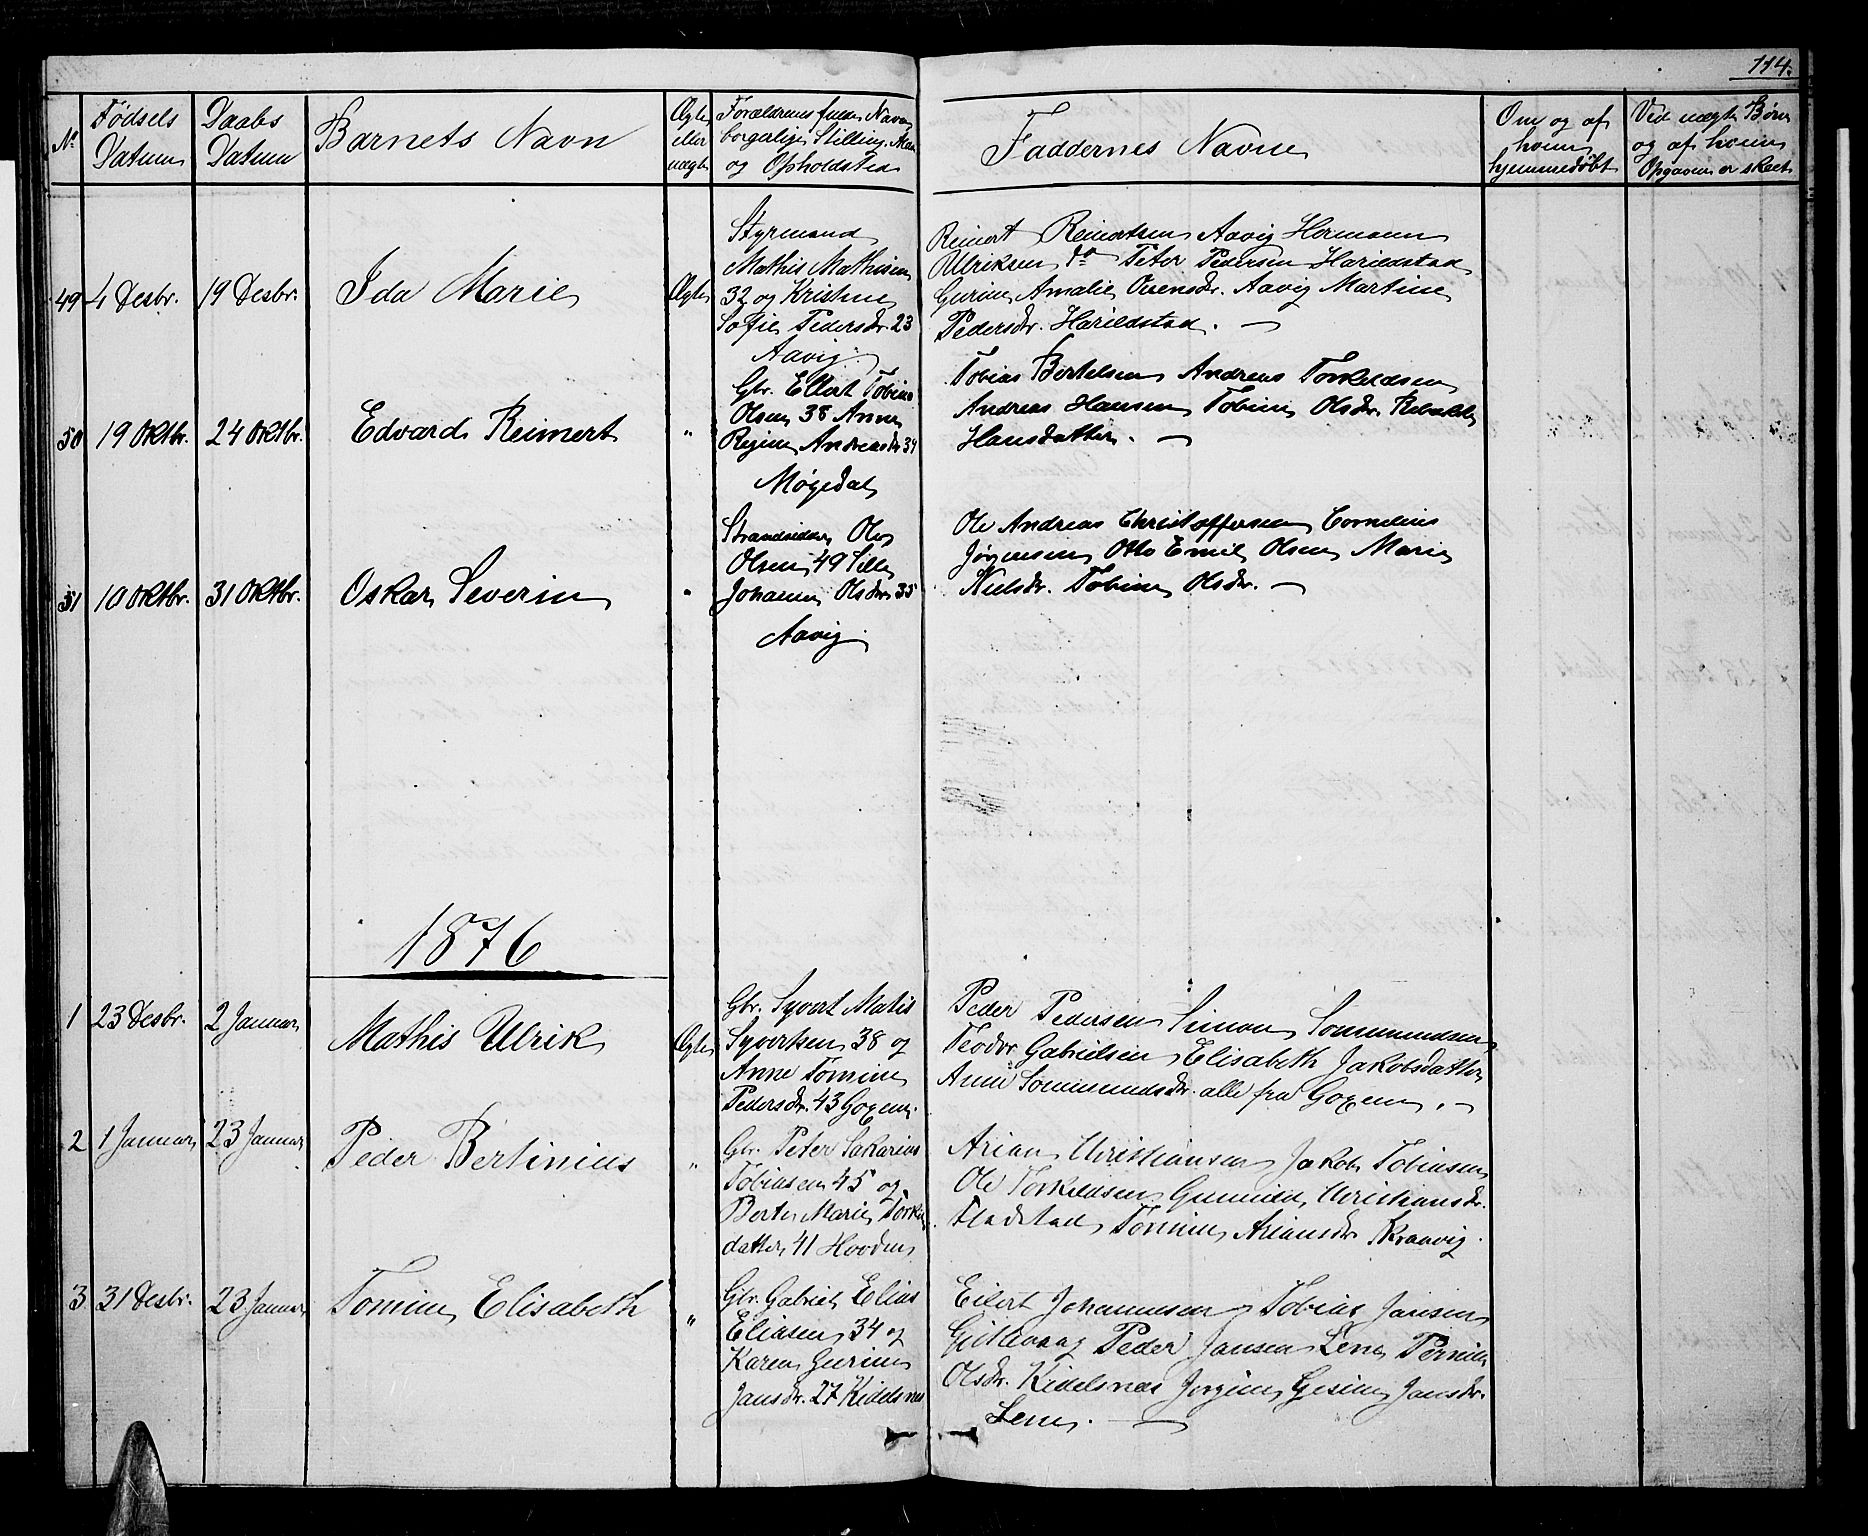 114.
No
Fødsels Datum
Daabs Datum
Barnets Navn
Ægte eller uægte
Forældrenes fulde Navn
borgerlige Stilling,
og Opholdsted
Faddernes Navne
Om og af hvem hjemmedøbt
Ved uægte Børn og af hvem Opgaven er skeet
49
4 Desbr.
19 Desbr.
Ida Marie
Ægte
Styrmand
Mathis Mathisen
32 og Kristine
Sofie Pedersdr. 23
Aavig.
Reinert Reinertsen Aavig Hermann
Ulriksen do Peter Pedersen Harildstad
Gurine Amalie Ovensdr. Aavig Martine
Pedersdr. Harildstad. —
50
19 Oktbr.
24 Oktbr.
Edvard Reimert
"
Gbr. Ellert Tobias
Olsen 38 Anne
Regine Andreasdr 34
Møgedal
Tobias Bertelsen Andreas Torkeldsen
Andreas Hansen Tobine Olsdr. Rebekke
Hansdatter. —
51
10 Oktbr.
31 Oktbr.
Oskar Severin
"
Strandsidder Ole
Olsen 49 Sille
Johanne Olsdr. 35
Aavig.
Ole Andreas Christoffersen Cornelius
Jørgensen Otto Emil Olsen Marie
Nielsdr. Tobine Olsdr. —
1876
1
23 Desbr.
2 Januar
Mathis Ulrik
Ægte
Gbr. Syvert Matis
Syvertsen 38 og
Anne Tomine
Pedersdr. 43 Goxem.
Peder Pedersen Simon Sommundsen
Teodor Gabrielsen Elisabeth Jakobsdatter
Anne Sommundsdr. alle fra Goxem. —
2
1 Januar
23 Januar
Peder Bertinius
"
Gbr. Peter Sakarias
Tobiasen 45 og
Berte Marie Torkel
datter 41 Hovden
Arian Christiansen Jakob Tobiasen
Ole Torkeldsen Gunnild Christiansdr.
Fladstad Tomine Ariansdr. Kraavig.
3
31 Desbr.
23 Januar
Tomine Elisabeth
"
Gbr. Gabriel Elias
Eliasen 34 og
Karen Gurine
Jansdr. 27 Kidelsnes
Eilert Johannesen Tobias Jansen
Gitlevaag Peder Jansen Lene Pernille
Olsdr. Kidelsnes Jorgine Gesine Jansdr.
Lene. —